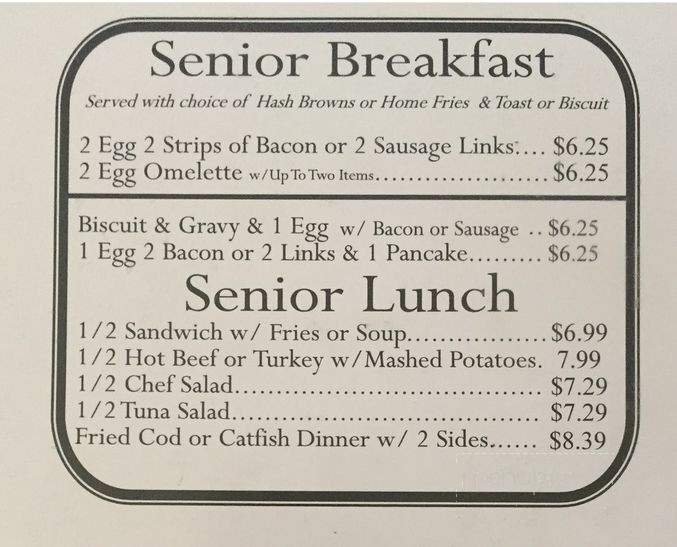 Senior Breakfast
Served with choice of Hash Browns or Home Fries & Toast or Biscuit
2 Egg 2 Strips of Bacon or 2 Sausage Links:... $6.25
2 Egg Omelette w/Up To Two Items..................... $6.25
Biscuit & Gravy & 1 Egg w/ Bacon or Sausage .. $6.25
1 Egg 2 Bacon or 2 Links & 1 Pancake......... $6.25
Senior Lunch
1/2 Sandwich w/ Fries or Soup................. $6.99
1/2 Hot Beef or Turkey w/Mashed Potatoes. 7.99
1/2 Chef Salad..................................... $7.29
1/2 Tuna Salad..................................... $7.29
Fried Cod or Catfish Dinner w/ 2 Sides...... $8.39